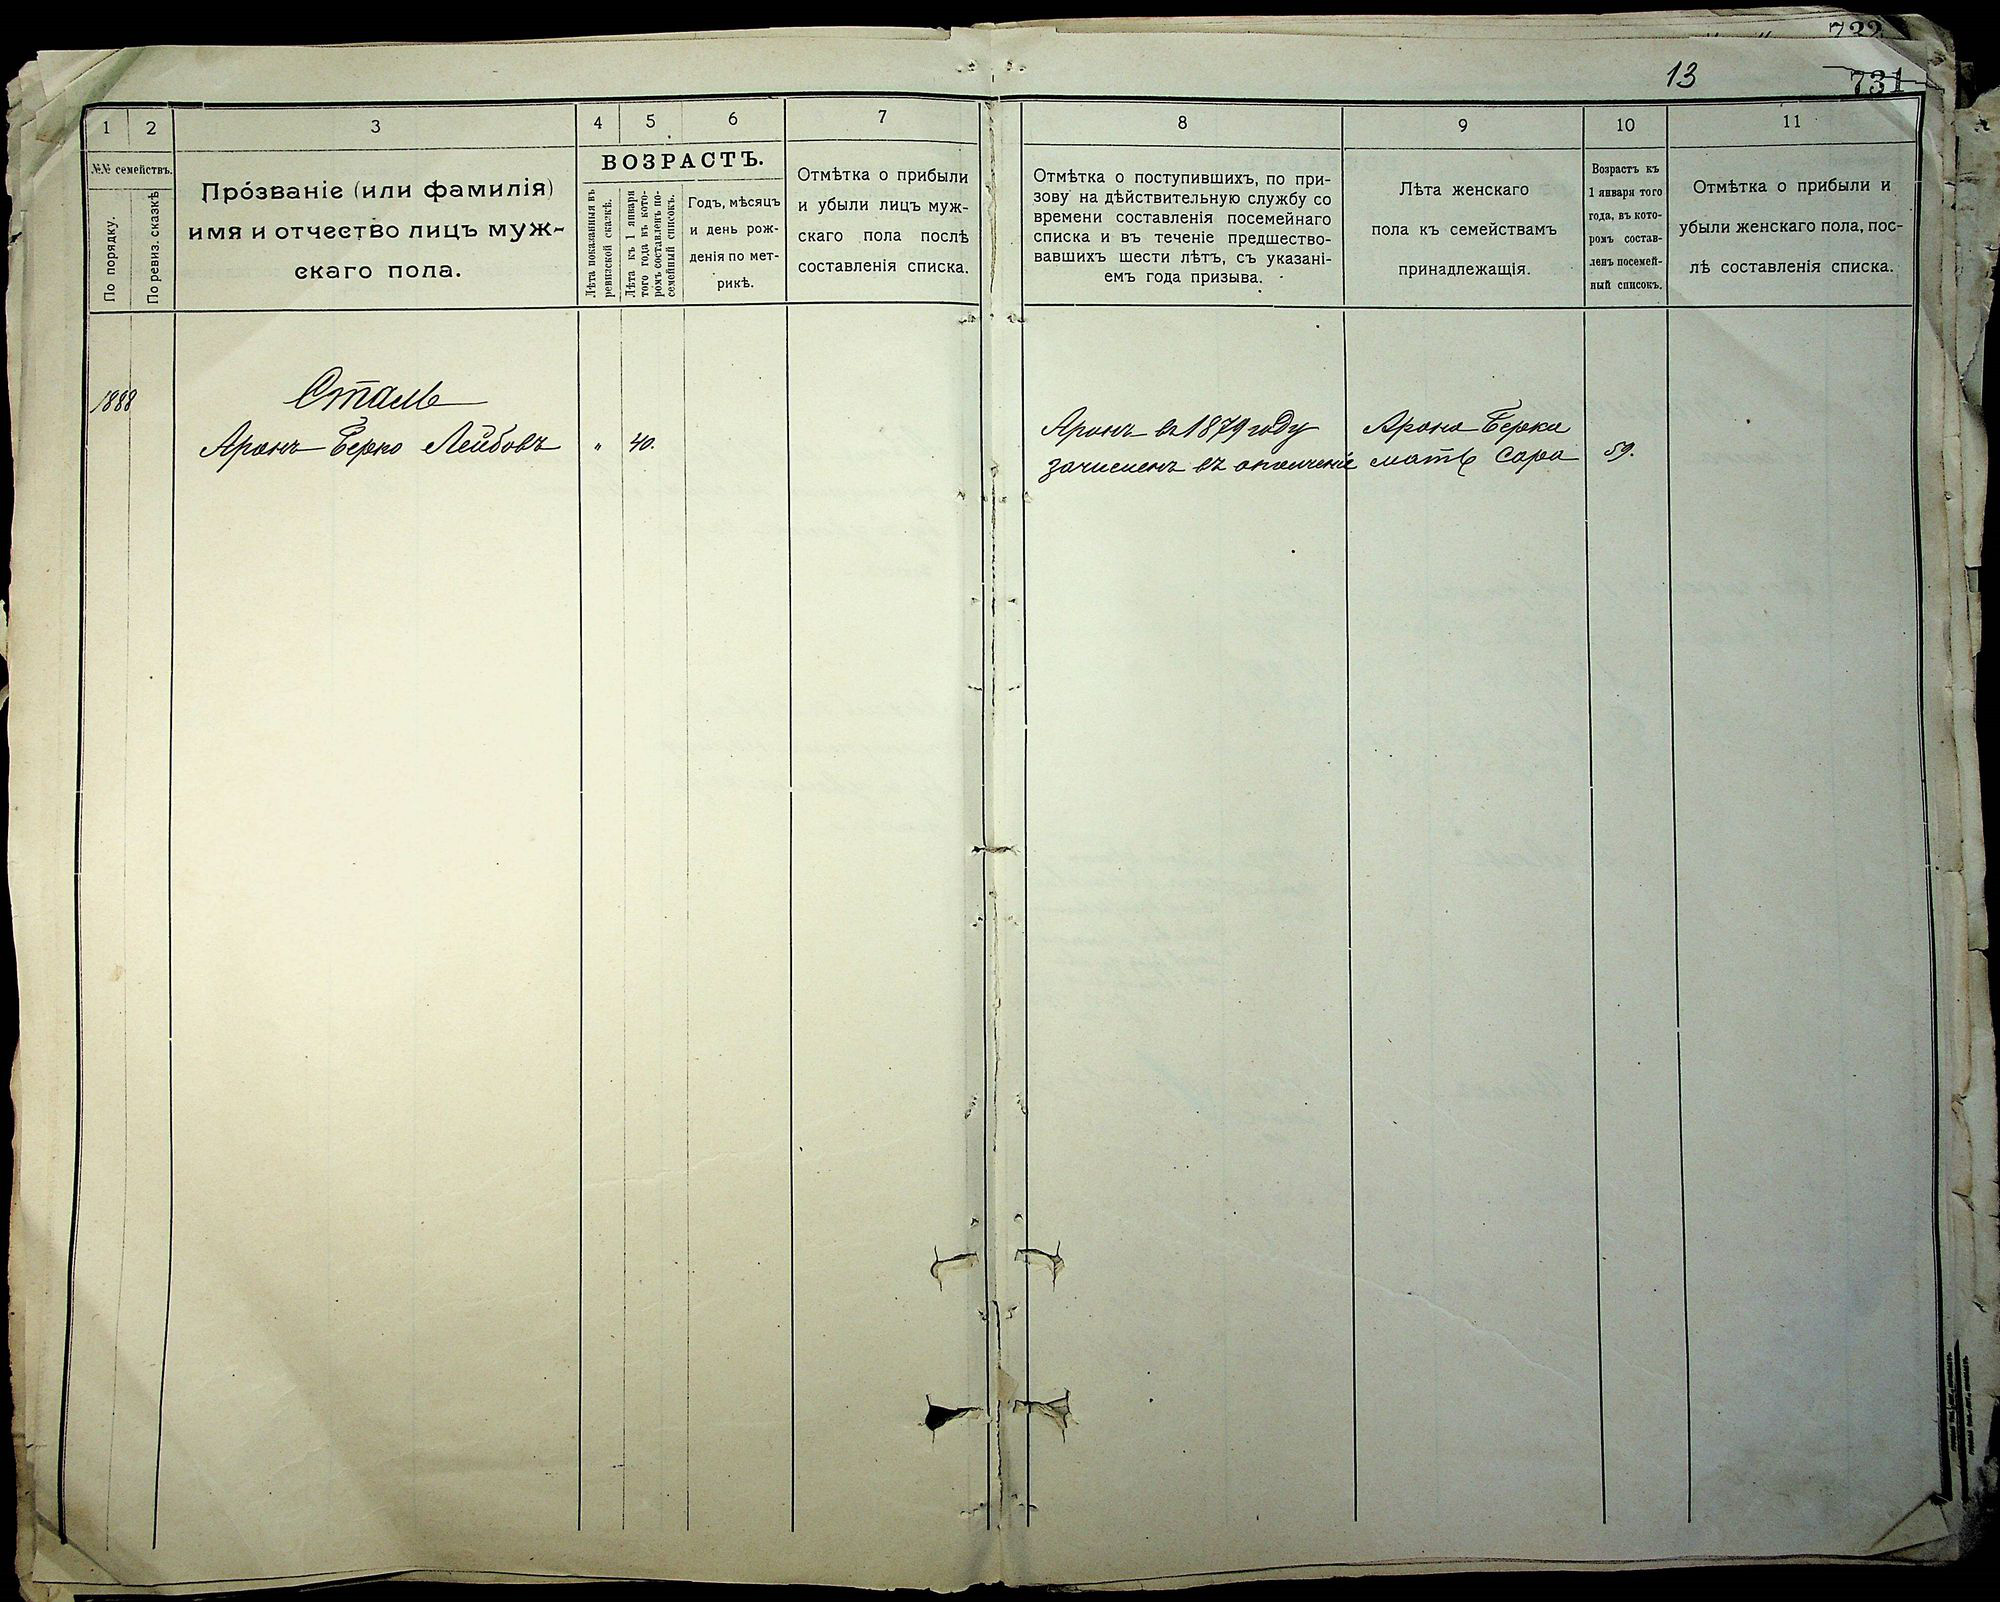 732
13
731
1
2
3
4
5
6
7
8
9
10
11
№№ семействъ.
По порядку.
По ревиз. сказкѣ
Прозваніе (или фамилія)
имя и отчество лицъ муж-
скаго пола.
ВОЗРАСТЪ.
Лѣта показанныя въ
ревизской сказкѣ.
Лѣта къ 1 января
того года въ кото-
ромъ составленъ по-
семейный списокъ.
Годъ, мѣсяцъ
и день рож-
денія по мет-
рикѣ.
Отмѣтка о прибыли
и убыли лицъ муж-
скаго пола послѣ
составленія списка.
Отмѣтка о поступившихъ, по при-
зову на дѣйствительную службу со
времени составленія посемейнаго
списка и въ теченіе предшество-
вавшихъ шести лѣтъ, съ указані-
емъ года призыва.
Лѣта женскаго
пола къ семействамъ
принадлежащія.
Возрастъ къ
1 января того
года, въ кото-
ромъ состав-
ленъ посемей-
ный списокъ.
Отмѣтка о прибыли и
убыли женскаго пола, пос-
лѣ составленія списка.
1888
Сталь
Аронъ Берко Лейбовъ " 40.
Аронъ въ 1879 году
зачисленъ въ ополченіе
Арона Берка
мать Сара 59.